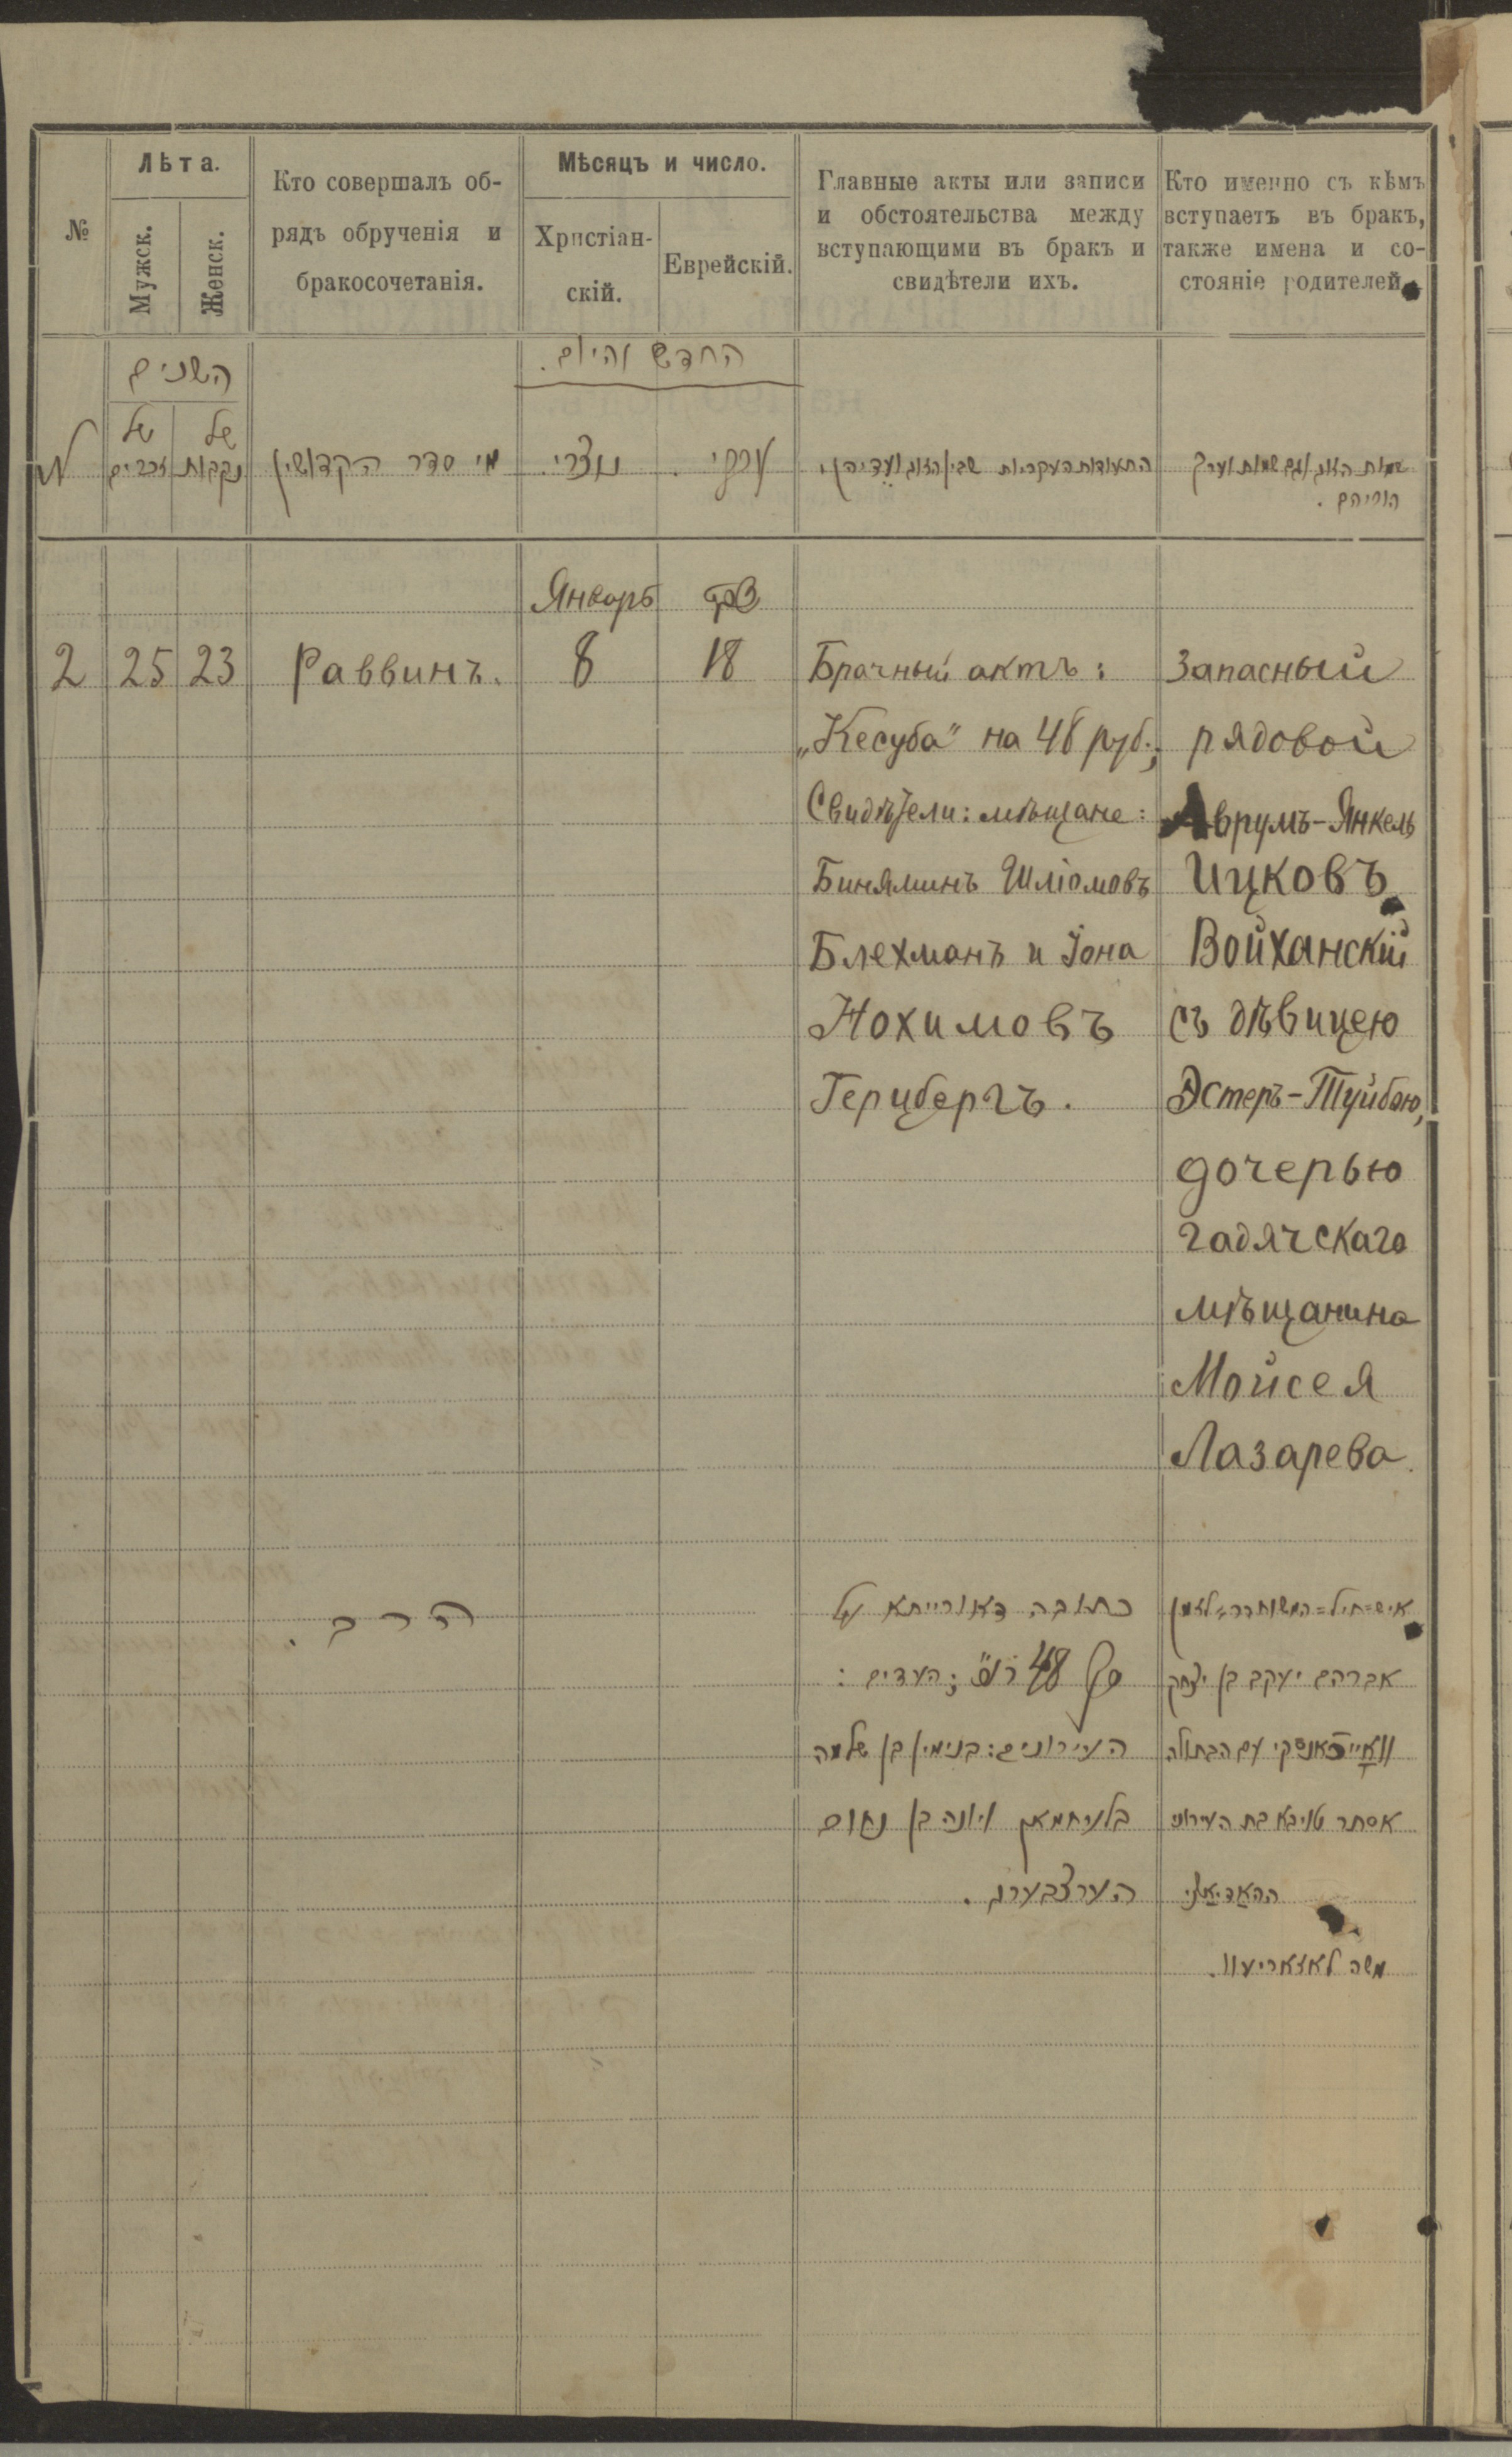 №
Лѣта.
Мужск.
Женск.
Кто совершалъ об-
рядъ обрученія и
бракосочетанія.
Мѣсяцъ и число.
Христіан-
скій.
Еврейскій.
Главные акты или записи
и обстоятельства между
вступающими въ бракъ и
свидѣтели ихъ.
Кто именно съ кѣмъ
вступаетъ въ бракъ,
также имена и со-
стояніе родителей.
השנים
של
זכרים
של
נקבות
מי סדר הקדושין
החדש והיום.
נוצרי.
עברי.
התעודות העקריות שבין הזוג ועדיהן
שמות הזוג וגם שמות וערך
הוריהם.
Январь
שבט
2
25
23
Раввинъ.
8
18
Брачный актъ:
„Кесуба" на 48 руб.;
Свидѣтели: мѣщане:
Биняминъ Шліомовъ
Блехманъ и Іона
Нохимовъ
Герцбергъ.
Запасный
рядовой
Аврумъ-Янкель
Ицковъ
Войханскій
съ дѣвицею
Эстеръ-Туйбою,
дочерью
гадячскаго
мѣщанина
Мойсея
Лазарева.
הרב.
כתובה דאורייתא על
סך 48 רו״כ; העדים:
העירונים: בנימין בן שלמה
בלעחמאן ויונה בן נחום
הערצבערג.
איש=חיל=המשוחרר=לזמן
אברהם יעקב בן יצחק
וואייכאנסקי עם הבתולה
אסתר טויבא בת העירוני
ההאדיאצי
משה לאזאריעוו.